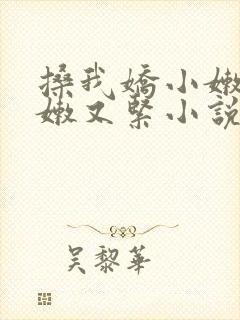 搡我嬌小嫩
嫩又緊小說
吳黎華